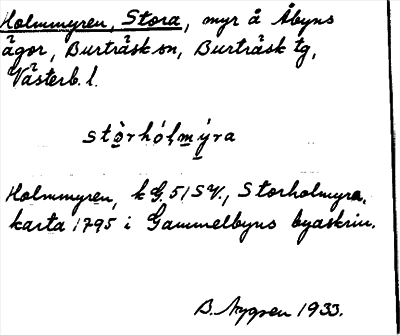 Holmmyren, Stora, myr å Åbyns
ägor, Burträsk sn, Burträsk tg,
Västerb. l.
stòrhólmýra
Holmmyren, k G. 51 SV., Storholmyra,
karta 1795 i Gammelbyns byaskrin.
B. Nygren 1933.